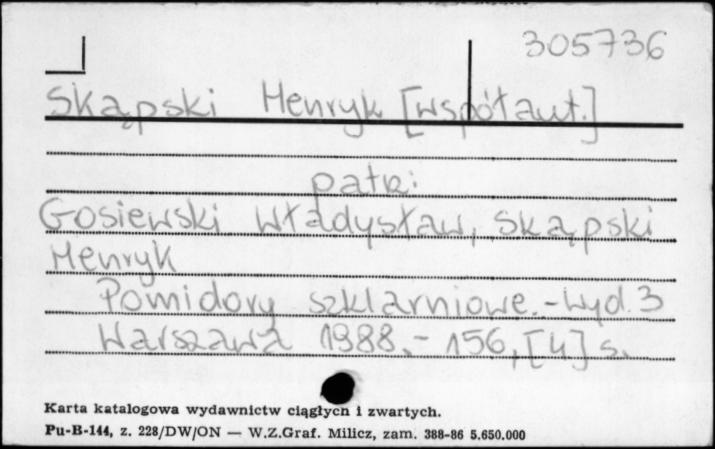 305736
Skąpski Henryk [współaut.]
patrz:
Gosiewski Władysław, Skąpski
Henryk
Pomidory szklarniowe.-Wyd. 3
Warszawa 1988.- 156, [4] s.
Karta katalogowa wydawnictw ciągłych i zwartych.
Pu-B-144, z. 228/DW/ON — W.Z.Graf. Milicz, zam. 388-86 5.650.000